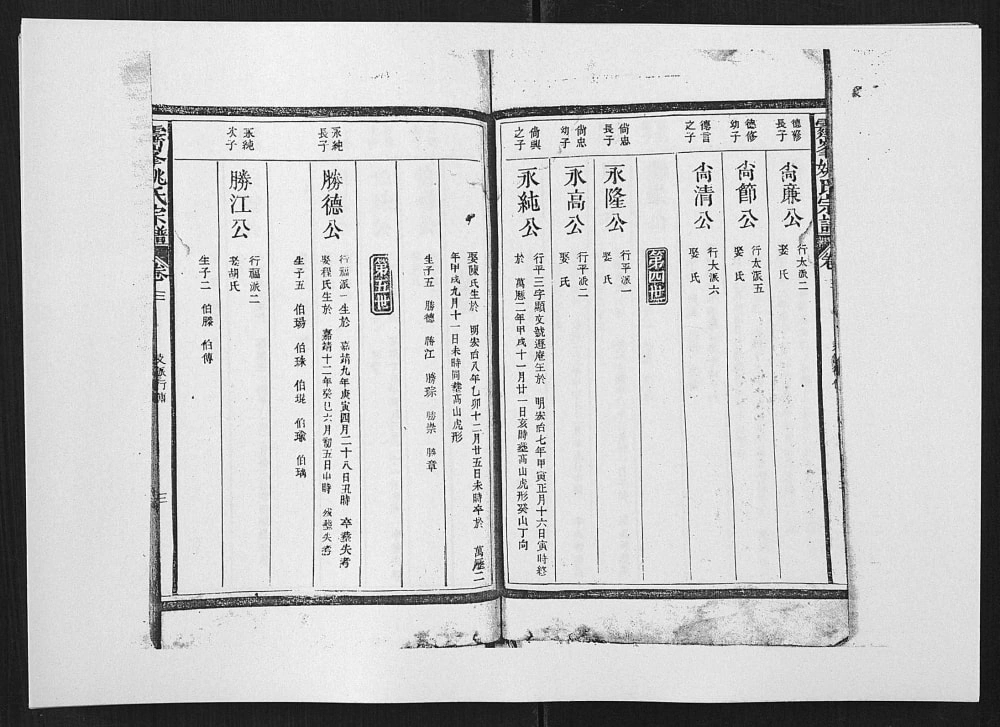 姚氏宗譜
德修長子
尚廉公
行太派二
娶 氏
德修幼子
尚節公
行太派五
娶 氏
德言之子
尚清公
行大派六
娶 氏
第四世
尚忠長子
永隆公
行平派一
娶 氏
尚忠幼子
永高公
行平派二
娶 氏
尚興之子
永純公
行平三字顯文號遯庵生於 明宏治七年甲寅正月十六日寅時終
於 萬曆二年甲戌十一月廿一日亥時塟高山虎形癸山丁向
娶陳氏生於 明宏治八年乙卯十二月廿五日未時卒於 萬曆二
年甲戌九月十一日未時同塟高山虎形
生子五 勝德 勝江 勝琮 勝崇 勝章
第五世
永純長子
勝德公
行福派一生於 嘉靖九年庚寅四月二十八日丑時 卒塟失考
娶程氏生於 嘉靖十二年癸巳六月初五日申時 歿塟失考
生子五 伯瑒 伯珠 伯琨 伯瑜 伯瑀
永純次子
勝江公
行福派二
娶胡氏
生子二 伯滕 伯傳
姚氏宗譜
卷三